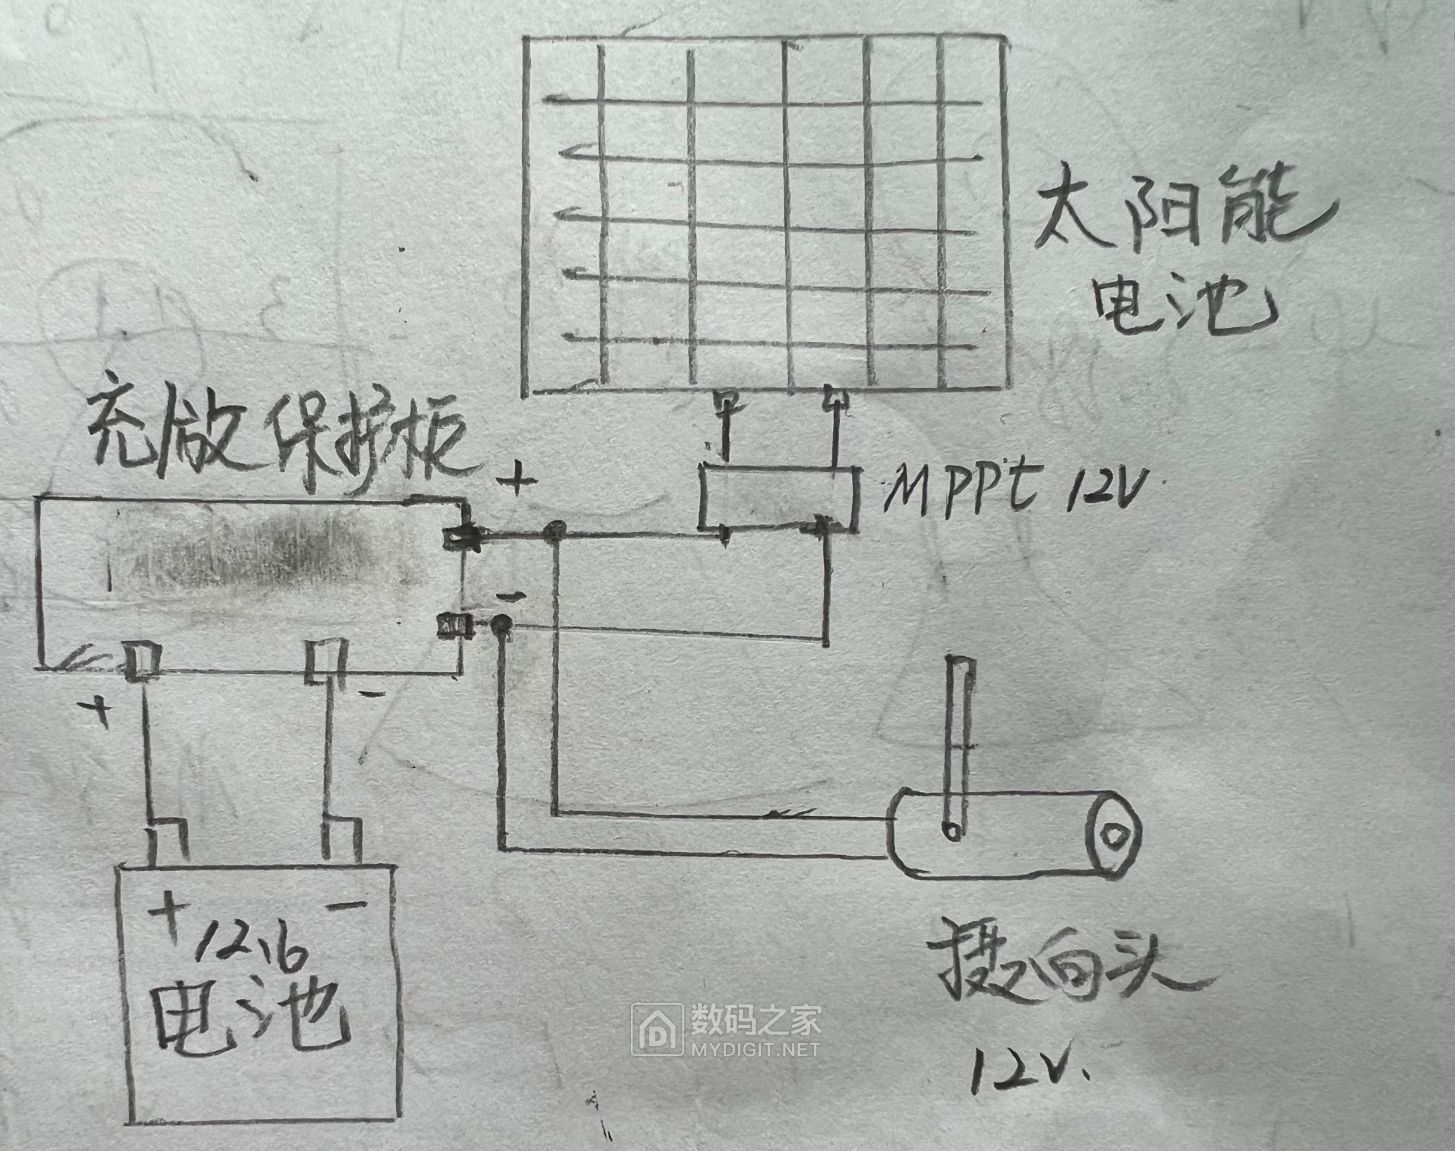 太阳能
电池
充放保护柜
+
MPPt 12V
-
+
-
+
-
12.6
电池
摄向头
12V.
数码之家
MYDIGIT.NET